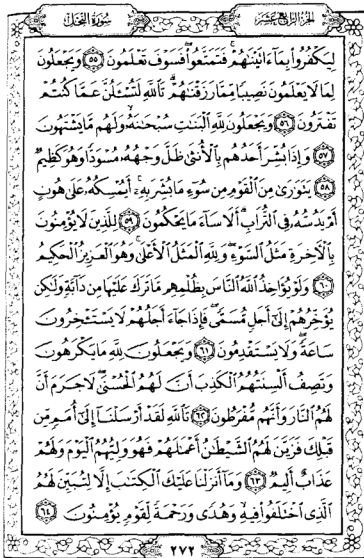 الجزء الرابع عشر سورة النحل
لِيَكْفُرُوا۟ بِمَآ ءَاتَيْنَٰهُمْ ۚ فَتَمَتَّعُوا۟ ۖ فَسَوْفَ تَعْلَمُونَ ٥٥ وَيَجْعَلُونَ
لِمَا لَا يَعْلَمُونَ نَصِيبًا مِّمَّا رَزَقْنَٰهُمْ ۗ تَٱللَّهِ لَتُسْـَٔلُنَّ عَمَّا كُنتُمْ
تَفْتَرُونَ ٥٦ وَيَجْعَلُونَ لِلَّهِ ٱلْبَنَٰتِ سُبْحَٰنَهُۥ ۙ وَلَهُم مَّا يَشْتَهُونَ
٥٧ وَإِذَا بُشِّرَ أَحَدُهُم بِٱلْأُنثَىٰ ظَلَّ وَجْهُهُۥ مُسْوَدًّا وَهُوَ كَظِيمٌ ٥٨
يَتَوَٰرَىٰ مِنَ ٱلْقَوْمِ مِن سُوٓءِ مَا بُشِّرَ بِهِۦٓ ۚ أَيُمْسِكُهُۥ عَلَىٰ هُونٍ
أَمْ يَدُسُّهُۥ فِى ٱلتُّرَابِ ۗ أَلَا سَآءَ مَا يَحْكُمُونَ ٥٩ لِلَّذِينَ لَا يُؤْمِنُونَ
بِٱلْـَٔاخِرَةِ مَثَلُ ٱلسَّوْءِ ۖ وَلِلَّهِ ٱلْمَثَلُ ٱلْأَعْلَىٰ ۚ وَهُوَ ٱلْعَزِيزُ ٱلْحَكِيمُ
٦٠ وَلَوْ يُؤَاخِذُ ٱللَّهُ ٱلنَّاسَ بِظُلْمِهِم مَّا تَرَكَ عَلَيْهَا مِن دَآبَّةٍ وَلَٰكِن
يُؤَخِّرُهُمْ إِلَىٰٓ أَجَلٍ مُّسَمًّى ۖ فَإِذَا جَآءَ أَجَلُهُمْ لَا يَسْتَـْٔخِرُونَ
سَاعَةً ۖ وَلَا يَسْتَقْدِمُونَ ٦١ وَيَجْعَلُونَ لِلَّهِ مَا يَكْرَهُونَ
وَتَصِفُ أَلْسِنَتُهُمُ ٱلْكَذِبَ أَنَّ لَهُمُ ٱلْحُسْنَىٰ ۖ لَا جَرَمَ أَنَّ
لَهُمُ ٱلنَّارَ وَأَنَّهُم مُّفْرَطُونَ ٦٢ تَٱللَّهِ لَقَدْ أَرْسَلْنَآ إِلَىٰٓ أُمَمٍ مِّن
قَبْلِكَ فَزَيَّنَ لَهُمُ ٱلشَّيْطَٰنُ أَعْمَٰلَهُمْ فَهُوَ وَلِيُّهُمُ ٱلْيَوْمَ وَلَهُمْ
عَذَابٌ أَلِيمٌ ٦٣ وَمَآ أَنزَلْنَا عَلَيْكَ ٱلْكِتَٰبَ إِلَّا لِتُبَيِّنَ لَهُمُ
ٱلَّذِى ٱخْتَلَفُوا۟ فِيهِ ۙ وَهُدًى وَرَحْمَةً لِّقَوْمٍ يُؤْمِنُونَ ٦٤
٢٧٣